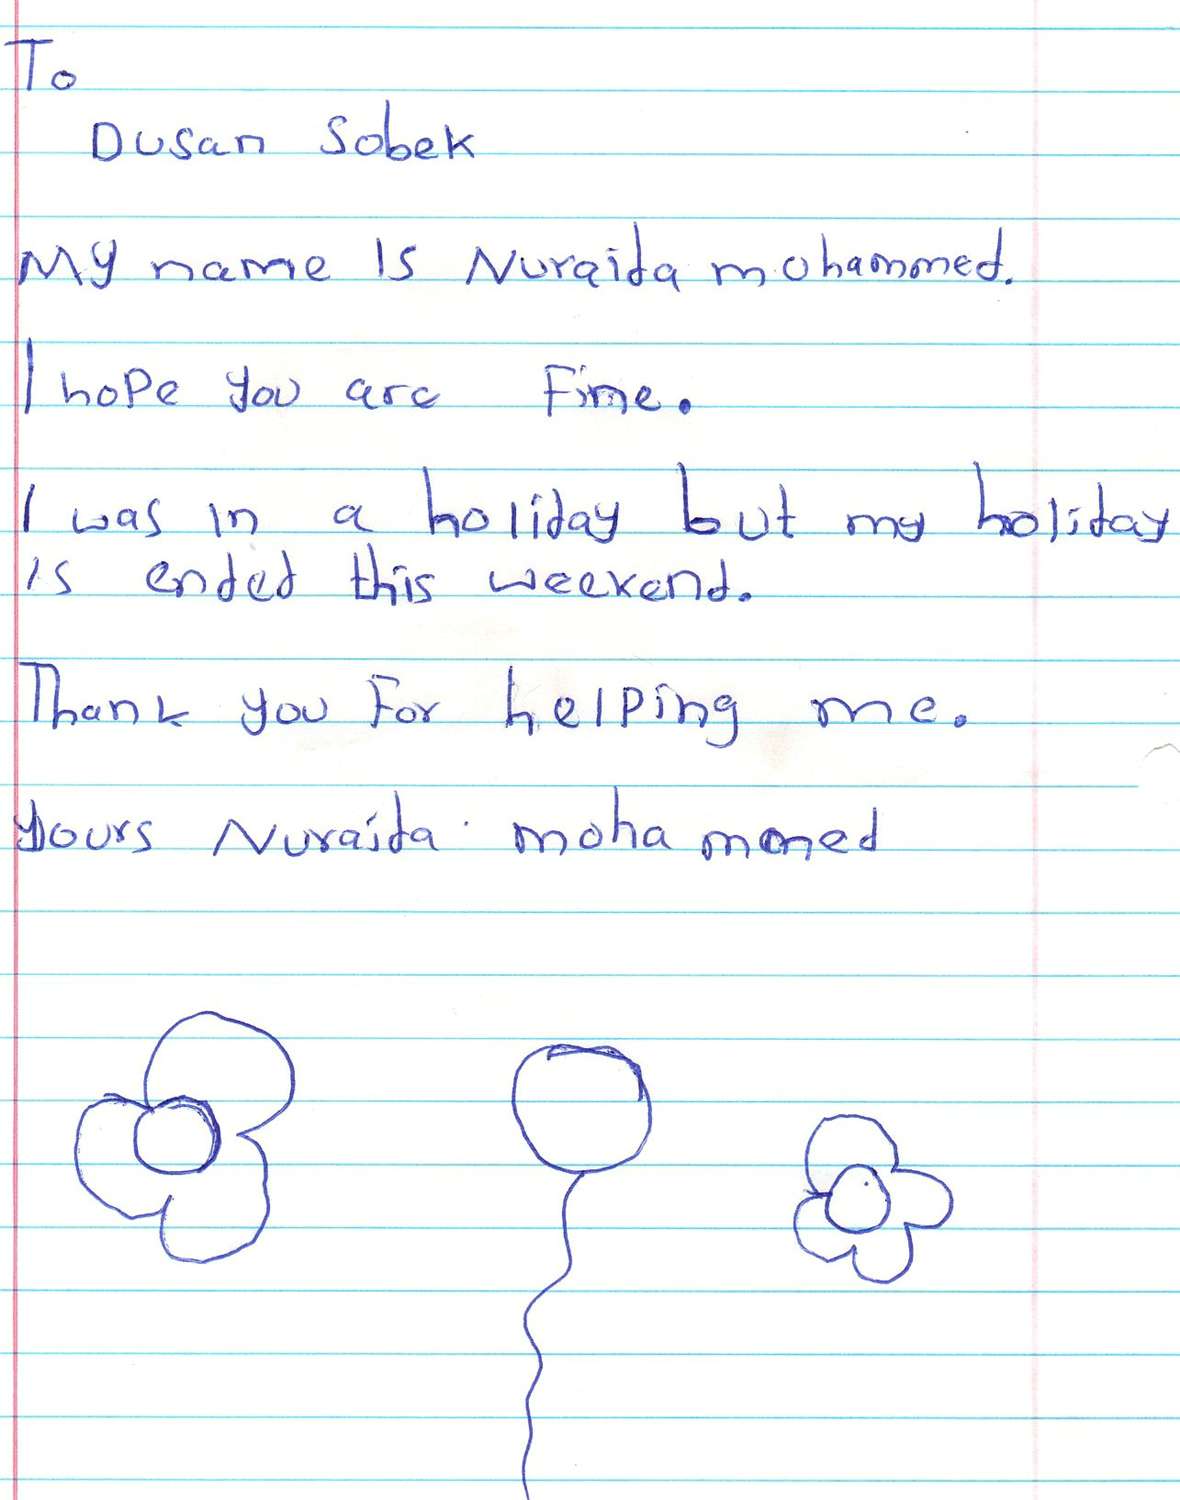 To
Dusan Sobek
My name is Nuraida mohammed.
I hope you are Fine.
I was in a holiday but my holiday
is ended this weekend.
Thank you For helping me.
yours Nuraida mohammed